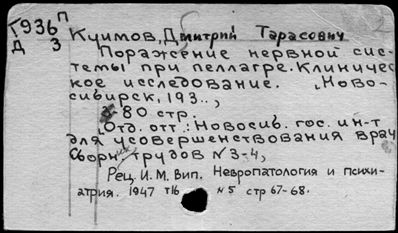 Г936 П
Д 3
Куимов, Дмитрий Тарасович
Поражение нервной сис-
темы при пеллагре. Клиничес-
кое исследование. Ново-
сибирск, 193..,
80 стр.
Отд. отт.: Новосиб. гос. ин-т
для усовершенствования врач
Сборник трудов №3-4,
Рец. И.М. Вип. Невропатология и психи-
атрия. 1947 т16 №5 стр 67-68.